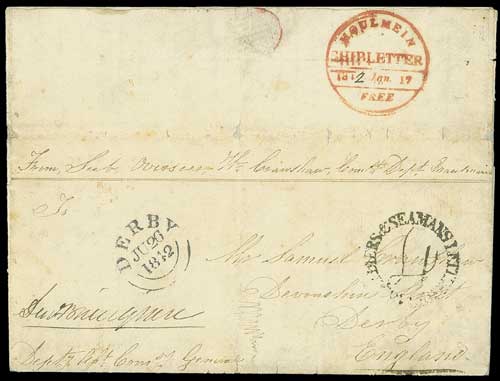 MOULMEIN
SHIPLETTER
1842 Jan. 17
FREE
From, Sub. Overseer Wm Cranshaw, Commt Dept
To
DERBY
JU 26
1842
& SEAMANS LETT
Mr Samuel
Devonshire Street
Derby
England
Depty Asst Comy General